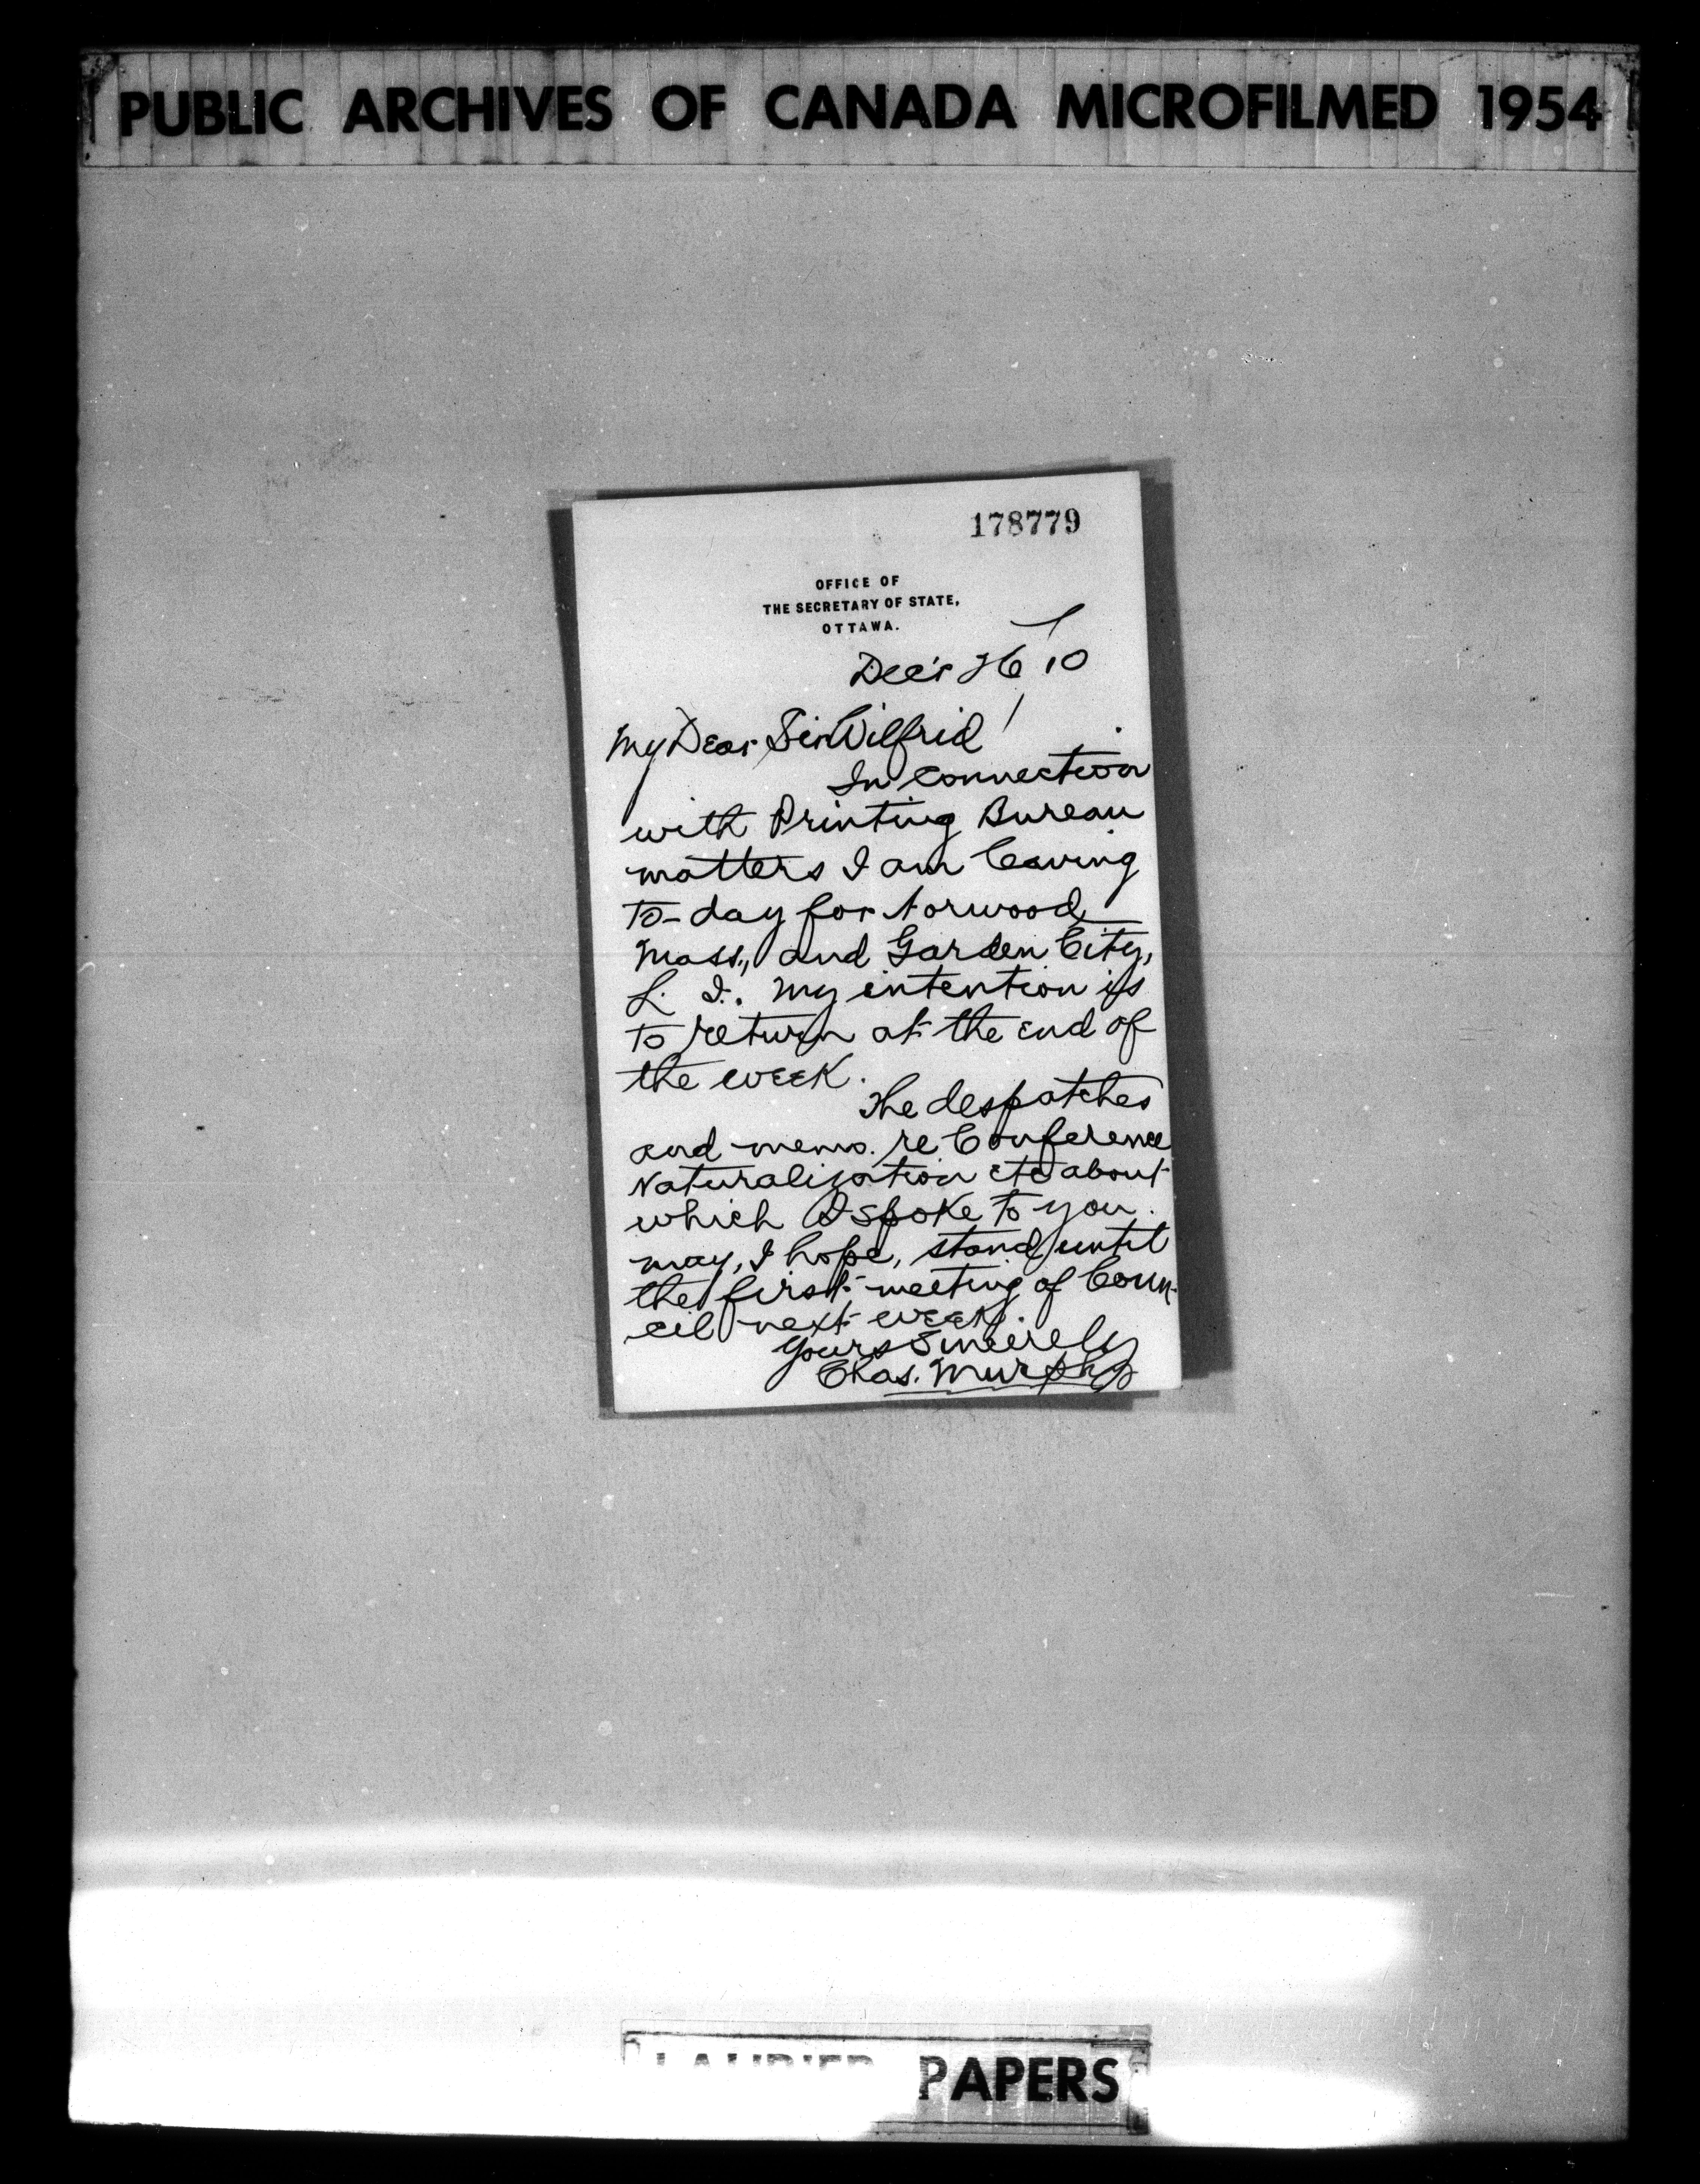 PUBLIC ARCHIVES OF CANADA MICROFILMED 1954
178779
OFFICE OF
THE SECRETARY OF STATE,
OTTAWA.
Dec'r 26 / 10
My Dear Sir Wilfrid!
In connection
with Printing Bureau
matters I am leaving
to-day for Norwood
Mass., and Garden City,
L. I. My intention is
to return at the end of
the week.
The despatches
and memo. re Conference
Naturalization etc about
which I spoke to you.
may, I hope, stand until
the first meeting of Coun-
cil next week.
Yours Sincerely
Chas. Murphy
LAURIER PAPERS